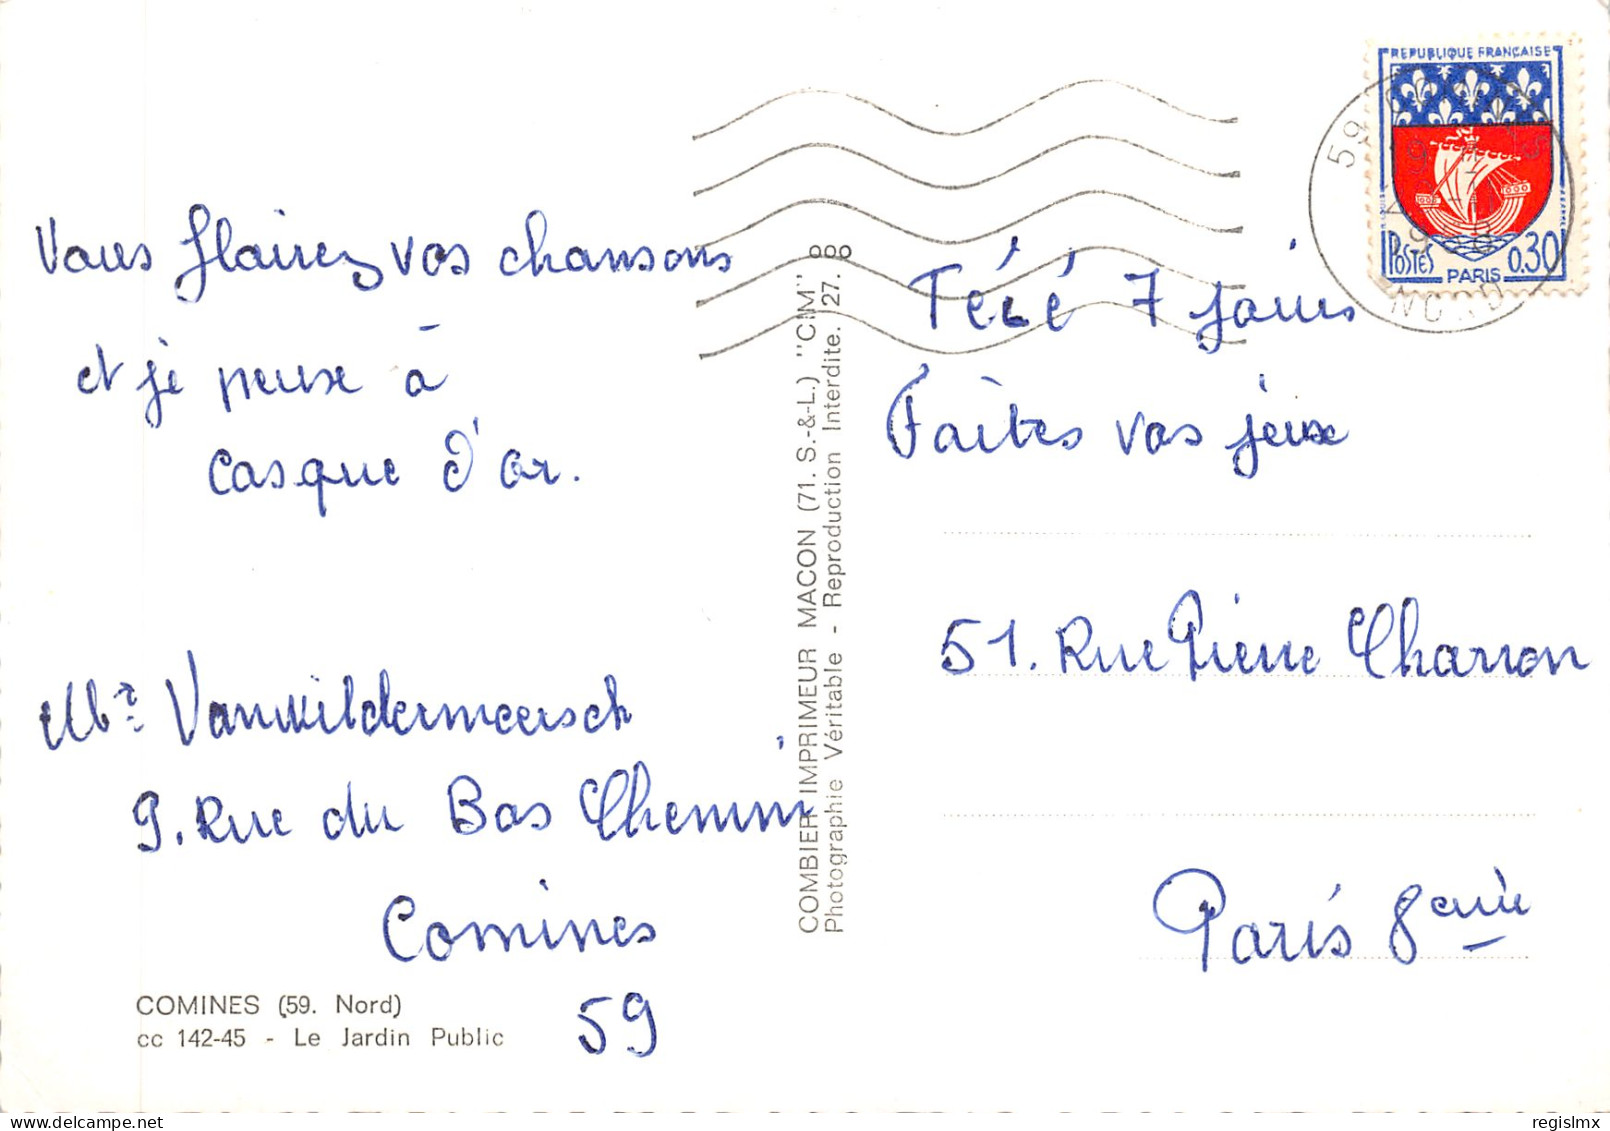 Vous flairez vos chansons
et je peuse à
casque d'or.
Mr Vanwildermeersch
9. Rue du Bas Chemin
Comines
59
COMINES (59. Nord)
cc 142-45 - Le Jardin Public
COMBIER IMPRIMEUR MACON (71. S.-&-L.) "CIM"
Photographie Véritable - Reproduction Interdite. 127. 68
REPUBLIQUE FRANÇAISE
POSTES PARIS 0.30
59
NORD
Télé 7 jours
Faites vos jeux
51. Rue Pierre Charron
Paris 8eme
regislmx